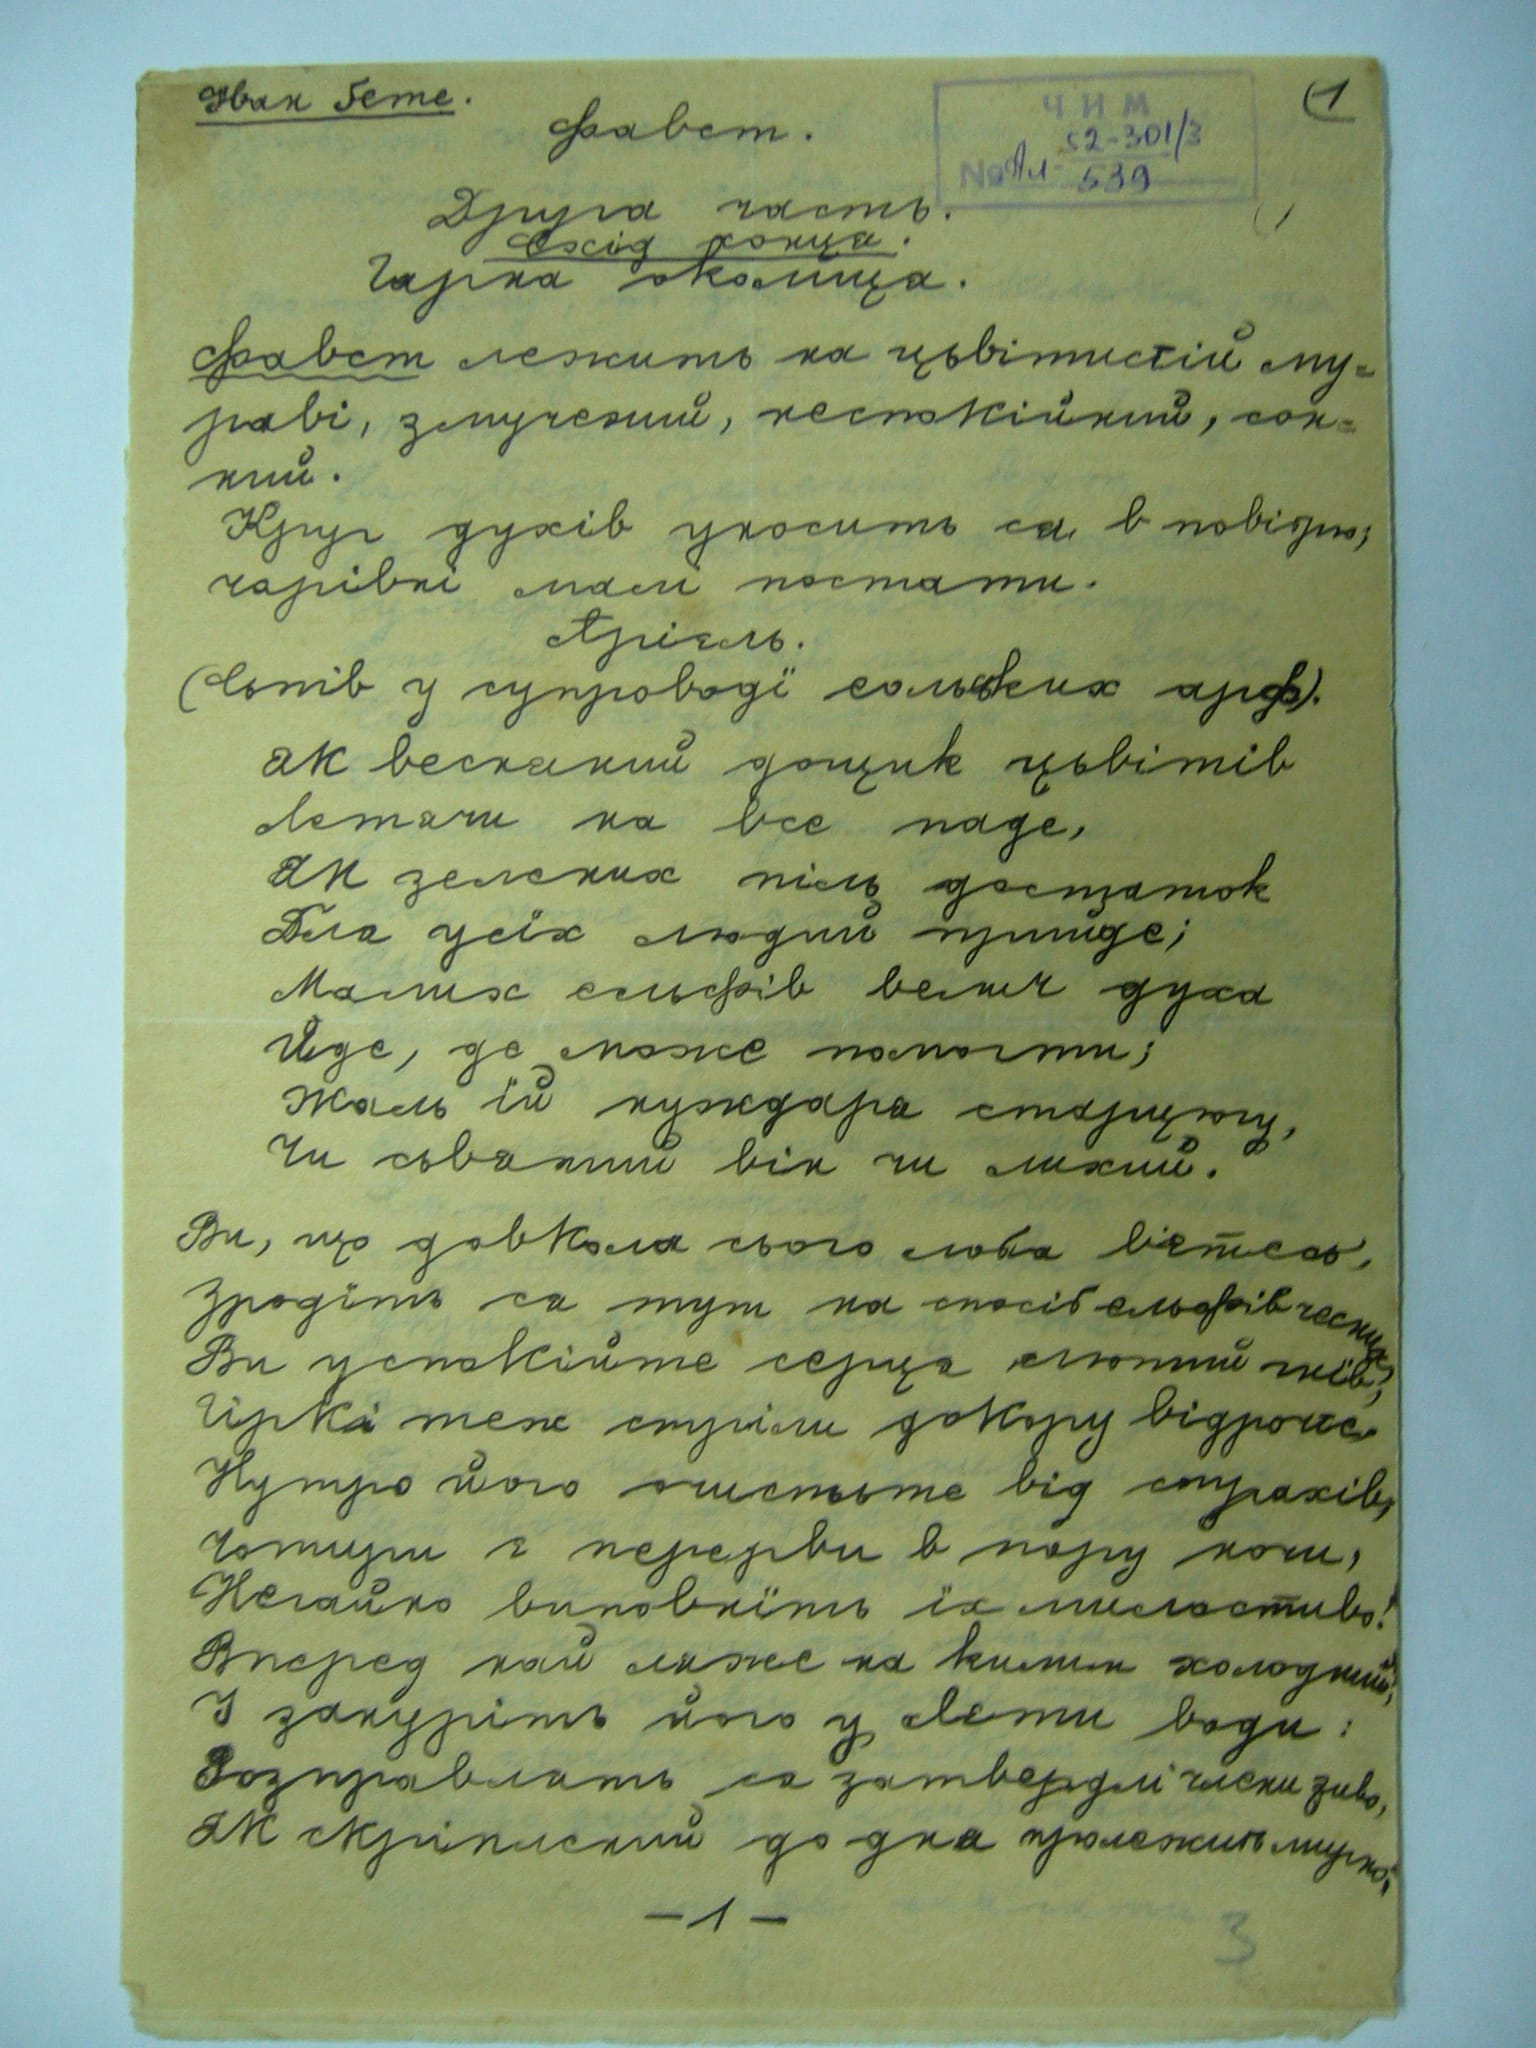 Іван Ґете.
(1
Фавст.
ЧИМ
52-301/3
No Ал- 539
Друга часть.
Схід сонця.
Гарна околиця.
Фавст лежить на цьвітистій му-
раві, змучений, неспокійний, сон-
ний.
Круг духів уносить ся в повітрю;
чарівні малі постати.
Аріель.
(Сьпів у супроводї еольських арф).
Як весняний дощик цьвітів
Летячи на все паде,
Як зелених піль достаток
Для усїх людий прийде;
Малих ельфів велич духа
Йде, де може помогти;
Жаль їй нуждаря старцюгу,
Чи сьвятий він чи лихий.
Ви, що довкола сього лоба вєтесь,
Зродїть ся тут на спосіб ельфів чесних,
Ви успокійте серця лютий гнїв,
Гіркі теж стріли докору відроч
Нутро його очистьте від страхів,
Чотири є перерви в пору ночи,
Негайно виповнїть їх милостиво!
Вперед най ляже на килим холодний,
І занурїть його у Лети води:
Розправлять ся затверділі члени живо,
Як скріплений до дня пролежить мирно;
– 1 –
3